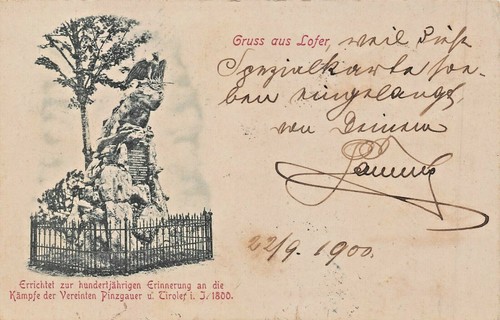 Gruss aus Lofer, weil diese
Spezialkarte soe-
ben eingelangt,
von Deinem
22/9. 1900.
Errichtet zur hundertjährigen Erinnerung an die
Kämpfe der Vereinten Pinzgauer u. Tiroler i. J. 1800.